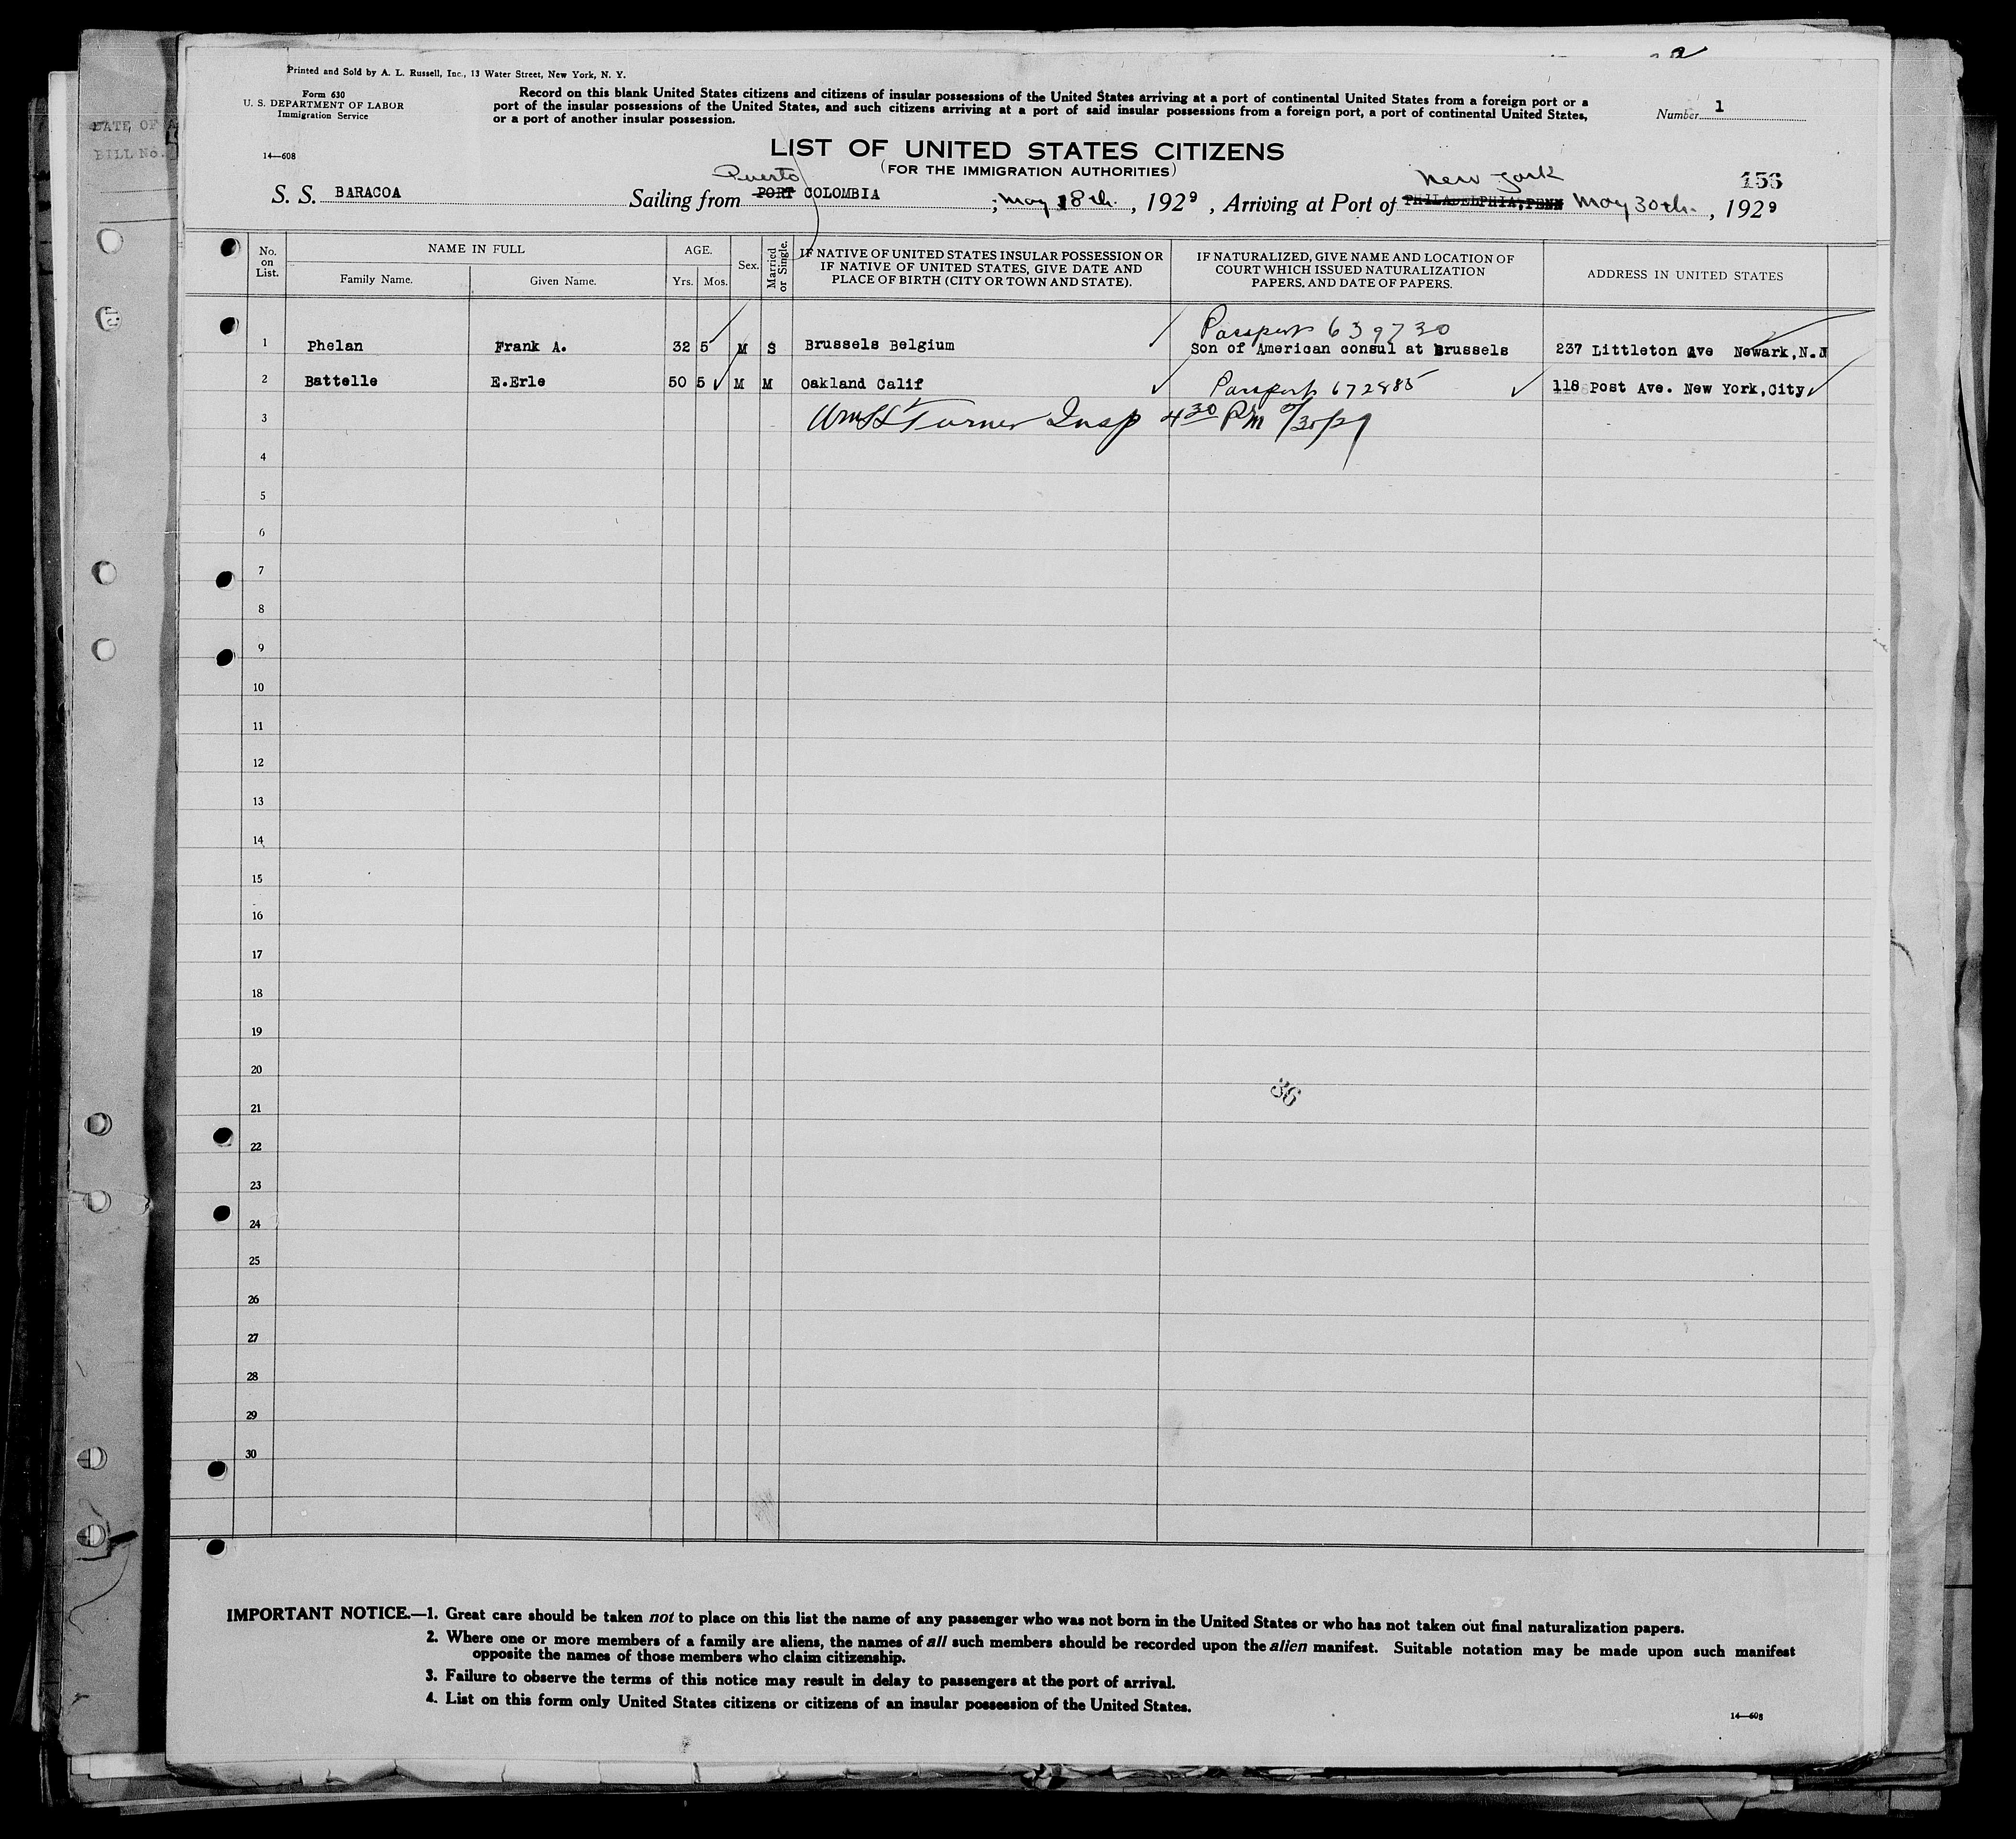 Printed and Sold by A. L. Russell, Inc., 13 Water Street, New York, N. Y.
Form 630
U. S. DEPARTMENT OF LABOR
Immigration Service
14—608
Record on this blank United States citizens and citizens of insular possessions of the United States arriving at a port of continental United States from a foreign port or a
port of the insular possessions of the United States, and such citizens arriving at a port of said insular possessions from a foreign port, a port of continental United States,
or a port of another insular possession.
Number 1
LIST OF UNITED STATES CITIZENS
(FOR THE IMMIGRATION AUTHORITIES)
156
Puerto
New York
S. S. BARACOA Sailing from PORT COLOMBIA ; May 18th. , 1929 , Arriving at Port of PHILADELPHIA, PENN May 30th. , 1929
DATE OF A
BILL No.
No. on List.
NAME IN FULL
Family Name.
Given Name.
AGE.
Yrs.
Mos.
Sex.
Married or Single.
IF NATIVE OF UNITED STATES INSULAR POSSESSION OR
IF NATIVE OF UNITED STATES, GIVE DATE AND
PLACE OF BIRTH (CITY OR TOWN AND STATE).
IF NATURALIZED, GIVE NAME AND LOCATION OF
COURT WHICH ISSUED NATURALIZATION
PAPERS, AND DATE OF PAPERS.
ADDRESS IN UNITED STATES
Passport 639730
1 Phelan Frank A. 32 5 M S Brussels Belgium Son of American consul at Brussels 237 Littleton Ave Newark,N.J
2 Battelle E.Erle 50 5 M M Oakland Calif Passport 672885 118 Post Ave. New York,City
3 Turner Insp 4 30 PM 5/30/29
4
5
6
7
8
9
10
11
12
13
14
15
16
17
18
19
20
36
21
22
23
24
25
26
27
28
29
30
IMPORTANT NOTICE.—1. Great care should be taken not to place on this list the name of any passenger who was not born in the United States or who has not taken out final naturalization papers.
2. Where one or more members of a family are aliens, the names of all such members should be recorded upon the alien manifest. Suitable notation may be made upon such manifest
opposite the names of those members who claim citizenship.
3. Failure to observe the terms of this notice may result in delay to passengers at the port of arrival.
4. List on this form only United States citizens or citizens of an insular possession of the United States.
14—608